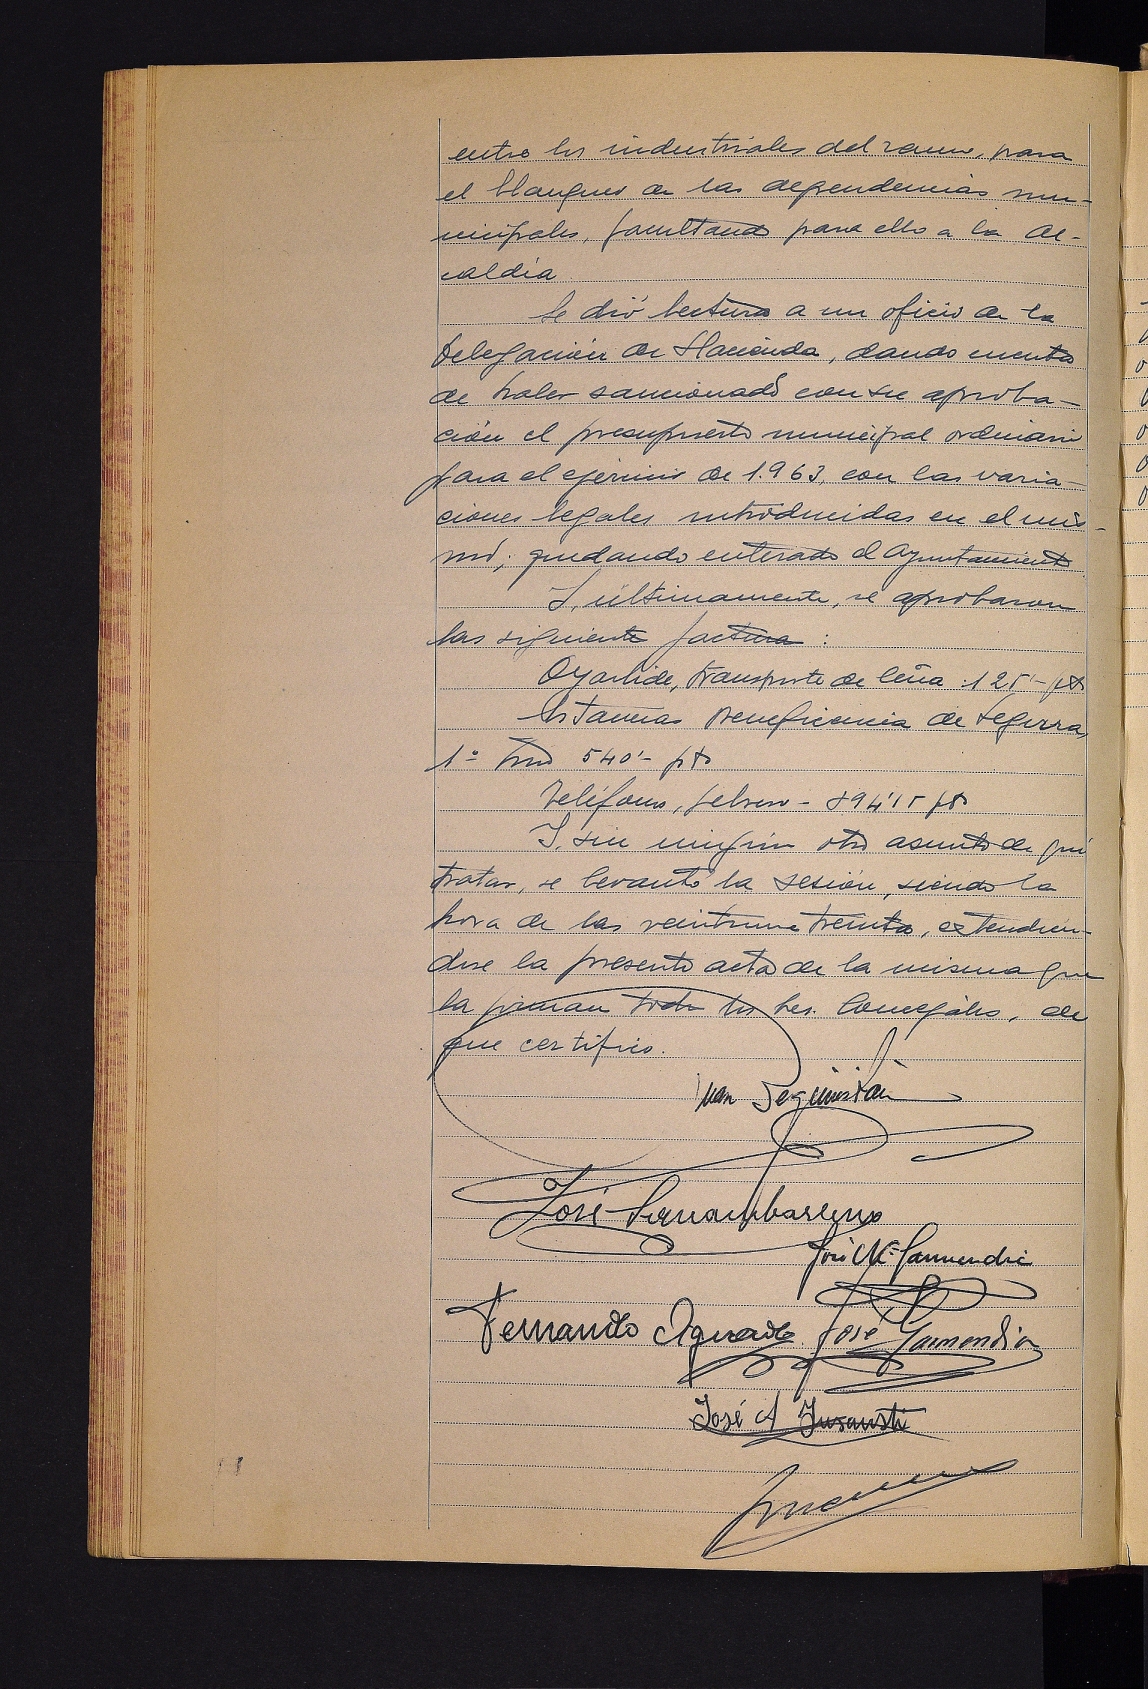 entre los industriales del ramo, para
el blanqueo de las dependencias mu-
nicipales, facultando para ello a la Al-
caldia
Se dió lectura a un oficio de la
Delegación de Hacienda, dando cuenta
de haber sancionado con su aproba-
ción el presupuesto municipal ordinario
para el ejercicio de 1.963, con las varia-
ciones legales introducidas en el mis-
mo; quedando enterado el Ayuntamiento
Y, últimamente, se aprobaron
las siguiente factura :
Oyarbide, transporte de leña 125'- pts
Estancias Beneficencia de Segura,
1º Trm 540'- pts
Teléfono, febrero - 894'15 pts
Y, sin ningún otro asunto de qué
tratar, se levantó la sesión, siendo la
hora de las veintiuna treinta, extendien-
dose la presente acta de la misma que
la firman todos los Sres. Concejales, de
que certifico.
Juan Seguin
José
José Mª Garmendia
Fernando Aguado José Garmendia
José A Insausti